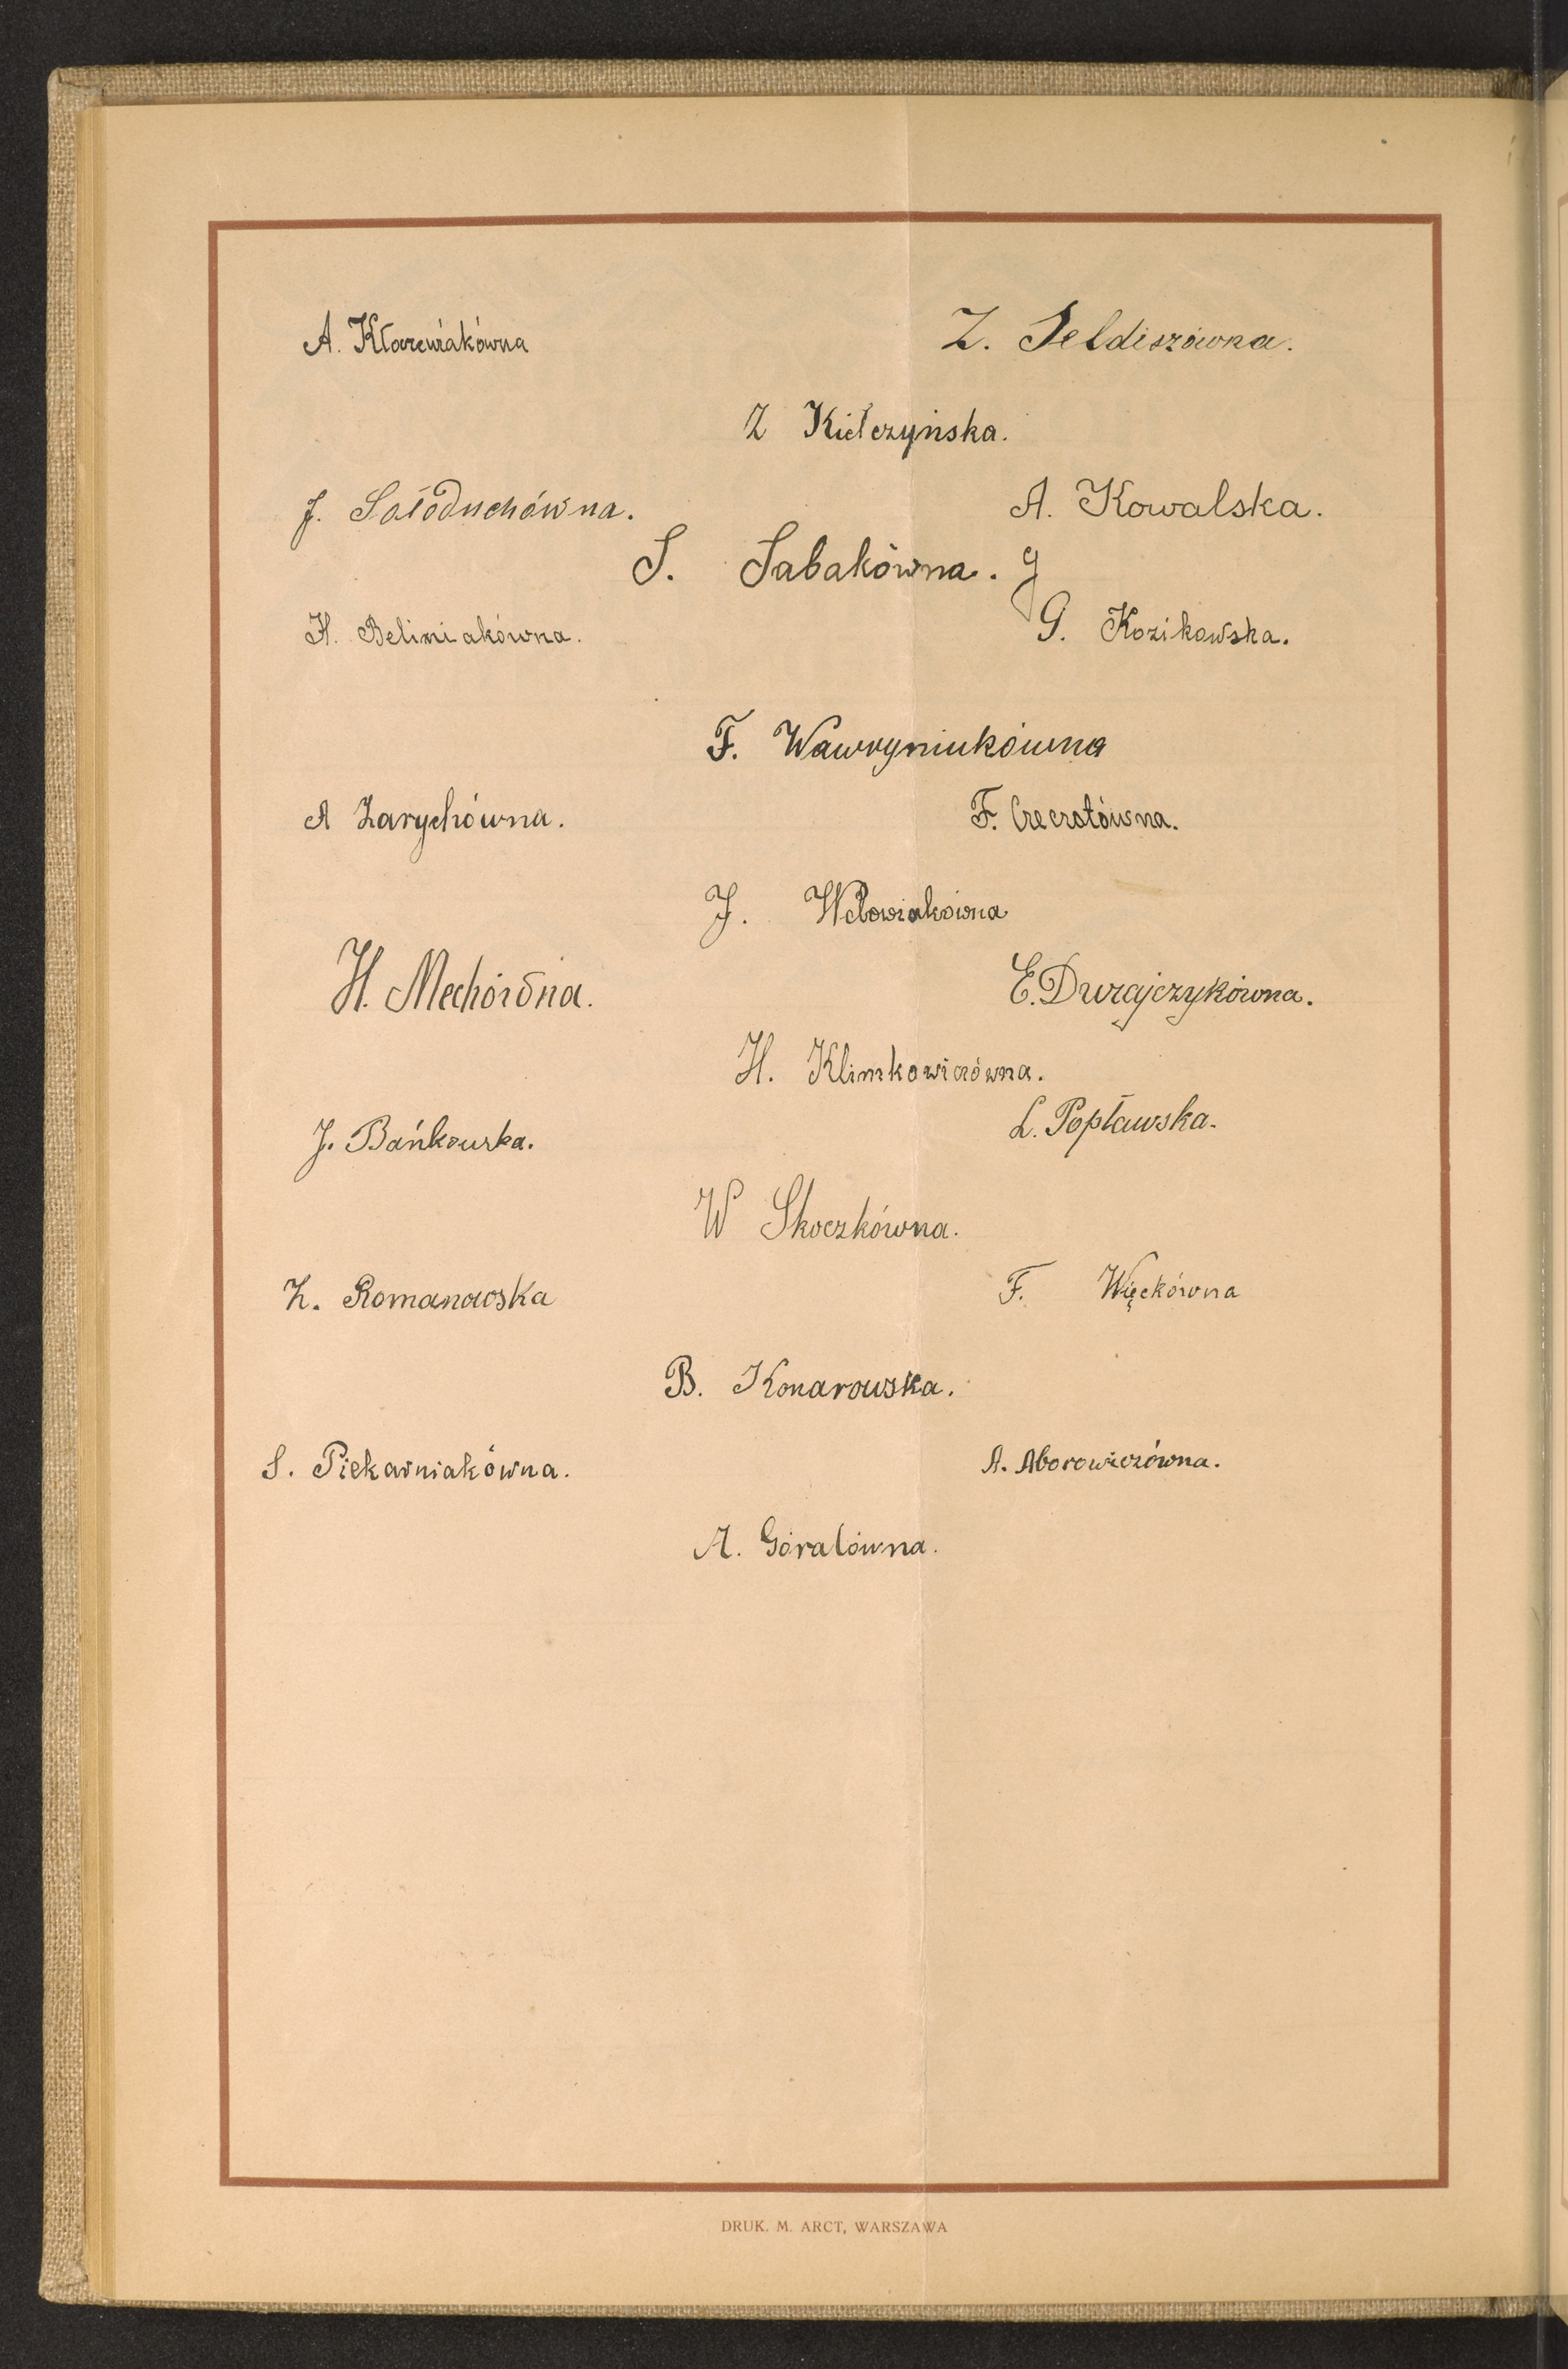 A. Kłoczewiakówna
Z. Seldiszówna.
Z Kiełczyńska.
J. Sołoduchówna.
A. Kowalska.
S. Sabakówna. g
H. Beliniakówna.
G. Kozikowska.
F. Wawryniukówna
A Zarychówna.
F. Czeczotówna.
J. Wdowiakówna
H. Mechówna.
E. Durajczykówna.
H. Klimkowiczówna.
L. Popławska.
J. Bańkowska.
W Skoczkówna.
Z. Romanowska
F. Więckówna
B. Konarowska.
S. Piekarniakówna.
A. Aborowiczówna.
A. Góralówna.
DRUK. M. ARCT, WARSZAWA